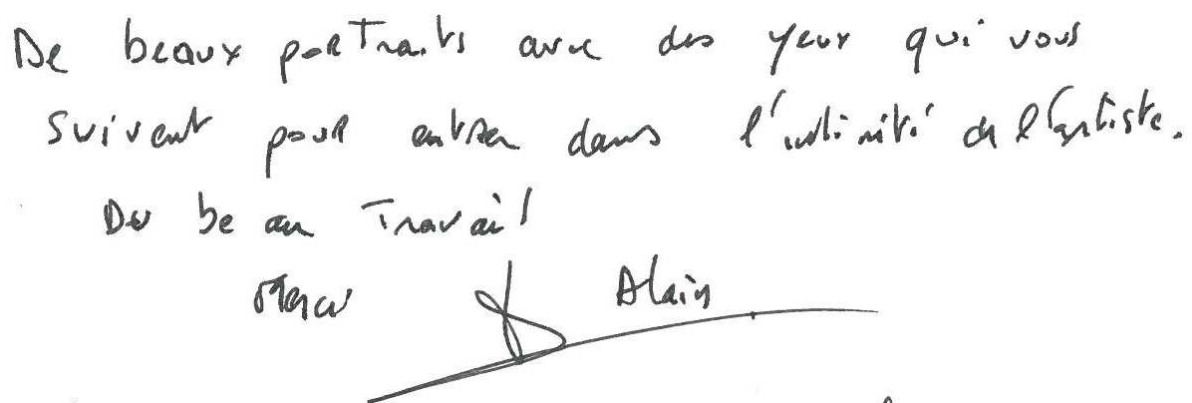 De beaux portraits avec des yeux qui vous
suivent pour entrer dans l'intimité de l'artiste.
Du beau Travail
Merci Alain